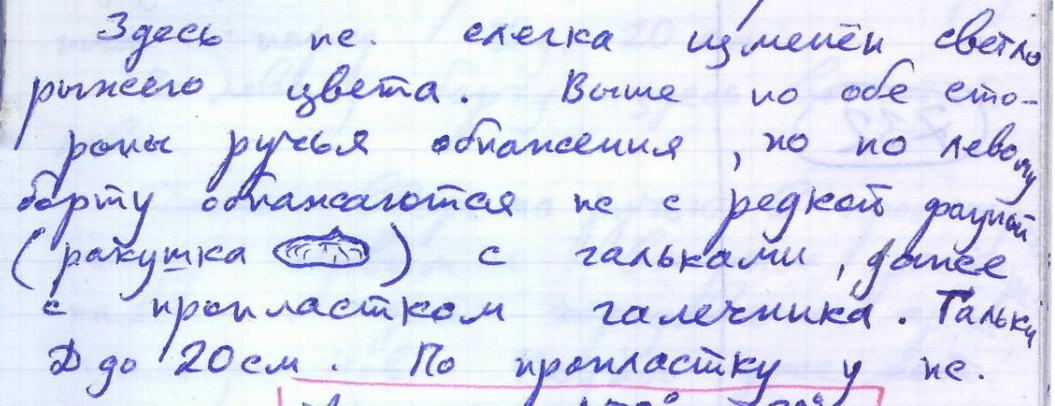 Здесь пс. слегка изменён светло
рыжего цвета. Выше по обе сто-
роны ручья обнажения, но по левому
борту обнажаются пс с редкой фауной
(ракушка ) с гальками, даже
с пропластком галечника. Гальки
D до 20 см. По пропластку у пс.